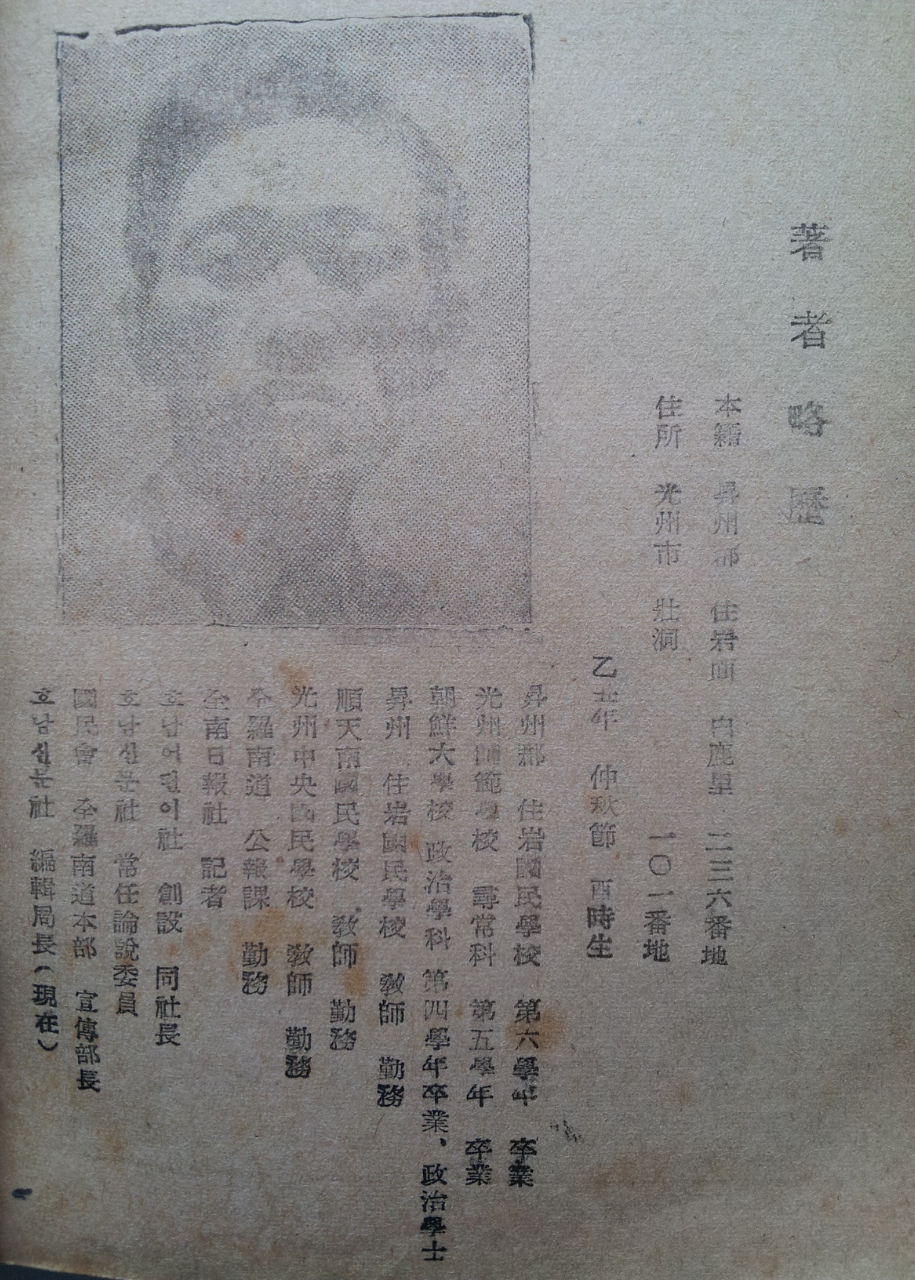 著者略歷
本籍 昇州郡 住岩面 白鹿里 二三六番地
住所 光州市 壯洞 一〇一番地
乙丑年 仲秋節 酉時生
昇州郡 住岩國民學校 第六學年 卒業
光州師範學校 尋常科 第五學年 卒業
朝鮮大學校 政治學科 第四學年卒業、政治學士
昇州 住岩國民學校 敎師 勤務
順天南國民學校 敎師 勤務
光州中央國民學校 敎師 勤務
全羅南道 公報課 勤務
全南日報社 記者
호남어린이社 創設 同社長
호남신문社 常任論說委員
國民會 全羅南道本部 宣傳部長
호남신문社 編輯局長(現在)